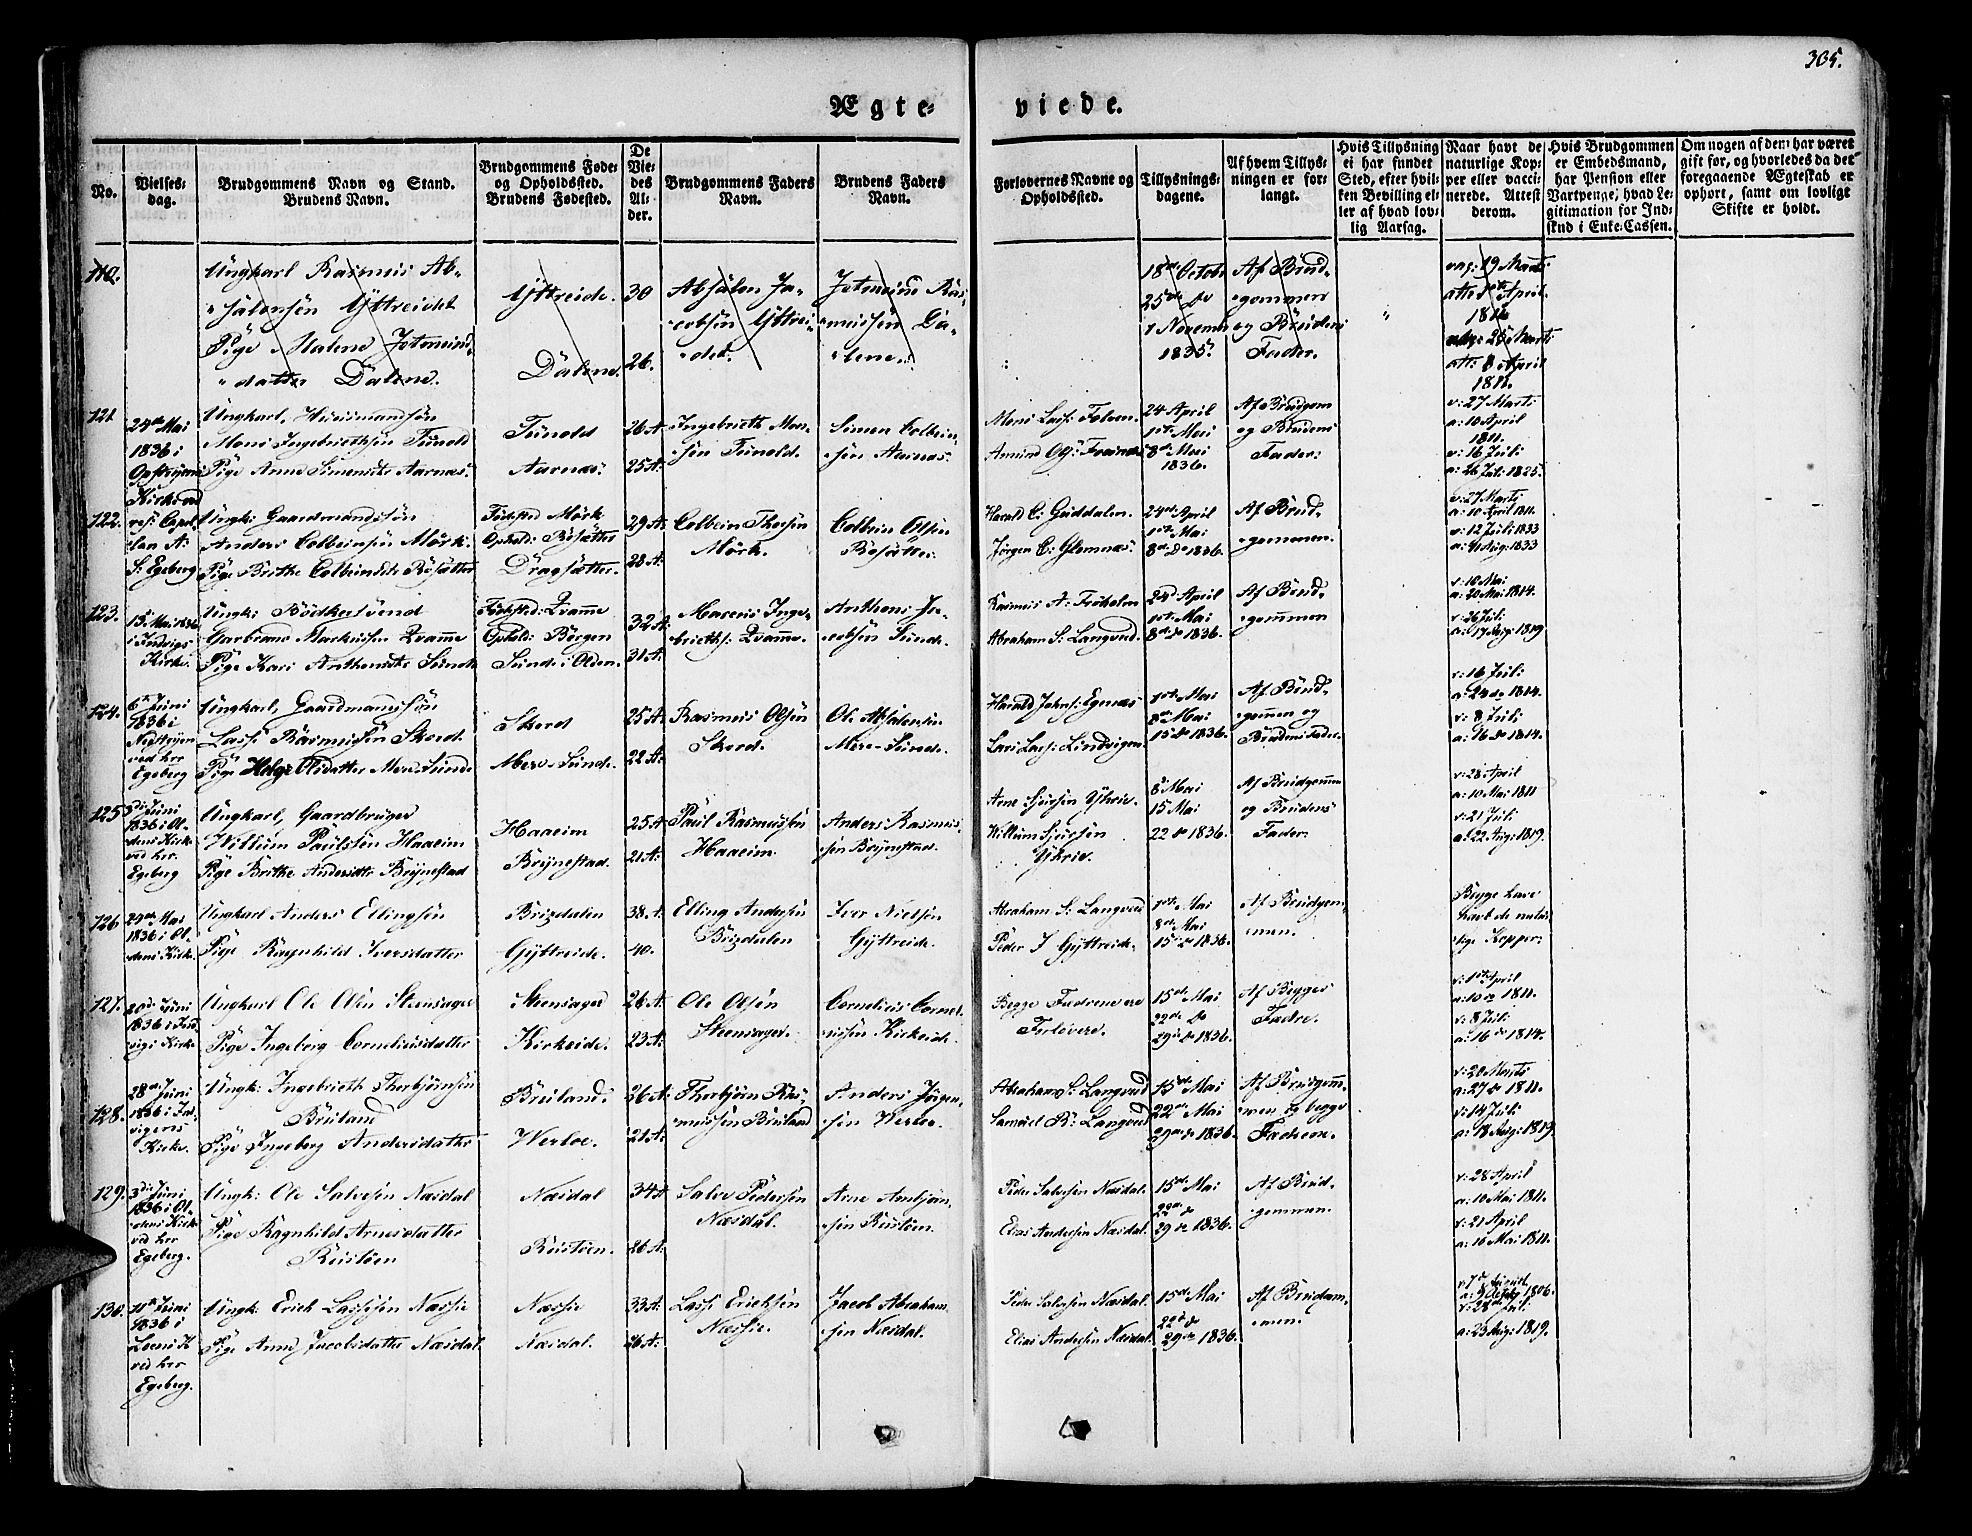 305.
Ægte-
viede.
No.
Vielses-
dag.
Brudgommens Navn og Stand.
Brudens Navn.
Brudgommens Føde-
og Opholdssted.
Brudens Fødested.
De
Vie-
des
Al-
der.
Brudgommens Faders
Navn.
Brudens Faders
Navn.
Forlovernes Navne og
Opholdssted.
Tillysnings-
dagene.
Af hvem Tillys-
ningen er for-
langt.
Hvis Tillysning
ei har fundet
Sted, efter hvil-
ken Bevilling el-
ler af hvad lov-
lig Aarsag.
Naar havt de
naturlige Kop-
per eller vacci-
nerede. Attest
derom.
Hvis Brudgommen
er Embedsmand,
har Pension eller
Vartpenge, hvad Le-
gitimation for Ind-
skud i Enke-Cassen.
Om nogen af dem har været
gift før, og hvorledes da det
foregaaende Ægteskab er
ophørt, samt om lovligt
Skifte er holdt.
Ungkarl Rasmus Ab-
salonsøn Yttreidet
Pige Malene Jetmund-
datter Dalene.
Yttreide.
Dalene.
30
26.
Absalon Ja-
cobsøn Yttrei-
det.
Jetmund Ras-
mussøn Da-
lene.
18de Octobr
25de do
1 Novemr
1835.
Af Brud-
gommen
og Brudens
Fader.
19 Marti
April
1811
Marti
8 April
1811.
121
24de Mai
1836 i
Opstryens
Kirke ved
res: Capel-
lan A:
S: Egeberg
Ungkarl, Huusmandsøn
Mons Ingebrethsøn Tunold
Pige Anne Simensdtr Aarnæs.
Tunold
Aarnæs.
26 A.
25 A.
Ingebreth Mon-
søn Tunold.
Simen Colbein-
søn Aarnæs.
Mons Lass: Folven.
24 April
1ste Mai
8de Mai
1836.
Af Brudgom
og Brudens
Fader.
v: 27 Marti
a: 10 April
1811.
v: 16 Juli
a: 26 Juli 1825.
122.
Ungk: Gaardmandssøn
Anders Colbeinsøn Mørk.
Pige Brithe Colbeinsdtr Røsætter
Fødested Mørk
Ophold: Røsætter
Dragsætter.
29 A.
28 A.
Colbein Thorsøn
Mørk.
Colbein Olsøn
Røsætter.
Harald C: Guddalen.
Jørgen C: Glomnæs.
24de April
1ste Mai
8de do 1836.
Af Brud-
gommen.
v: 27 Marti
a: 10 April 1811.
v: 12 Juli 1833
a: 4 Aug: 1833
123.
15 Mai 1836
i Indvigs
Kirke.
Ungk: Bødkersvend
Garbrans Markussøn Qvamme
Pige Kari Anthonsdtr Sunde
Fødested: Qvamme
Ophold: Bergen
Sunde i Olden.
32 A.
31 A.
Marcus Inge-
briethss: Qvamme.
Anthoni Ja-
cobsøn Sunde.
Rasmus A: Frøholm
Abraham S: Langved.
24d April
1ste Mai
8de do 1836.
Af Brud-
gommen
v: 10 Mai
a: 20 Mai 1814.
v: 26 Juli
a: 17 Aug: 1819
124.
6te Juni
1836 i
Nedstryen
ved hr
Egeberg
Ungkarl, Gaardmandssøn
Lasse Rasmussøn Skord.
Pige Helge Olsdatter Mere-Sunde
Skord
Mere-Sunde.
25 A.
22 A.
Rasmus Olsøn
Skord.
Ole Absalonsøn
Mere-Sunde.
Harald Johns: Egenæs
Lars Lass: Lindvigen.
1ste Mai
8de Mai
15 do 1836.
Af Brud-
gommen og
Brudens Fader.
v: 16 Juli
a: 24 do 1814.
v: 8 Juli
a: 16 do 1814.
125
Juni
1836 i Ol-
dens Kirke
ved hr.
Egeberg
Ungkarl, Gaardbruger
Willum Paulsøn Haaeim
Pige Brithe Andersdtr Brynestad
Haaeim
Brynestad.
25 A.
21 A.
Paul Rasmussøn
Haaeim.
Anders Rasmus-
søn Brynestad.
Arne Sjursøn Yhrie.
Willum Sjursøn
Yhrie.
8 Mai
15 Mai
22 do 1836.
Af Brudgommen
og Brudens
Fader.
v: 28 April
a: 10 Mai 1811
v: 21 Juli
a: 22 Aug: 1819.
126
29de Mai
1836 i Ol-
dens Kirke.
Ungkarl Anders Ellingsøn
Pige Ragnhild Iversdatter
Brigsdalen
Gyttreide.
38 A.
40.
Elling Andersøn
Iver Nielsøn
Gyttreide.
Abraham S: Langved
Peder J Gyttreide.
1ste Mai
8de Mai
15de do 1836.
Af Brudgom-
men.
Begge have
havt de natur-
lige Kopper.
127.
20de Juni
1836 i Ind-
vigs Kirke
Ungkarl Ole Olsn Steensager
Pige Ingeborg Corneliusdatter
Steensager
Kirkeide.
26 A.
23 A.
Ole Olsøn
Steensager.
Cornelius Cornel-
iussøn Kirkeide.
Begge Fædrene ere
Forlovere.
15de Mai
22de do
29de do 1836.
Af Begges
Fædre.
v: 1ste April
a: 10 do 1811.
v: 8 Juli
a: 16 do 1814.
128.
28de Juni
1836 i Ind-
vigens
Kirke.
Ungk: Ingebrieth Thorbjørnsøn
Bruland
Pige Ingeborg Andersdatter
Bruland
Werloe.
26 A.
21 A.
Thorbjørn Ras-
mussøn Bruland
Anders Jørgen-
søn Werloe.
Abraham S: Langved
Samuel R: Langved
15de Mai
22de Mai
29de do 1836.
Af Brudgom-
men og begge
Fædrene.
v: 20 Marts
a: 27 do 1811.
v: 14 Juli
a: 18 Aug: 1819
129.
3die Juni
1836 i Ol-
dens Kirke
ved hr
Egeberg.
Ungk: Ole Salvesøn Næsdal
Pige Ragnhild Arnesdatter
Rustøen
Næsdal
Rustøen.
34 A
26 A.
Salve Pedersøn
Næsdal.
Arne Ambjørn-
søn Rustøen.
Peder Salvesøn Næsdal.
Elias Andersøn Næsdal.
15de Mai
22de do
29 do 1836.
Af Brud-
gommen.
v: 28 April
a: 10 Mai 1811.
v: 21 April
a: 16 Mai 1811.
130.
Juni
1836 i
Loens K
ved hr
Egeberg.
Ungk: Erich Lassesøn Næssie
Pige Anne Jacobsdatter Næsdal.
Næssie
Næsdal.
33 A.
26 A.
Lasse Erichsøn
Næssie.
Jacob Abraham-
søn Næsdal.
Peder Salvesøn Næsdal.
Elias Andersøn Næsdal.
15de Mai
22de do
29 do 1836.
Af Brudgom-
men.
1806.
a: 23 Aug: 1819.